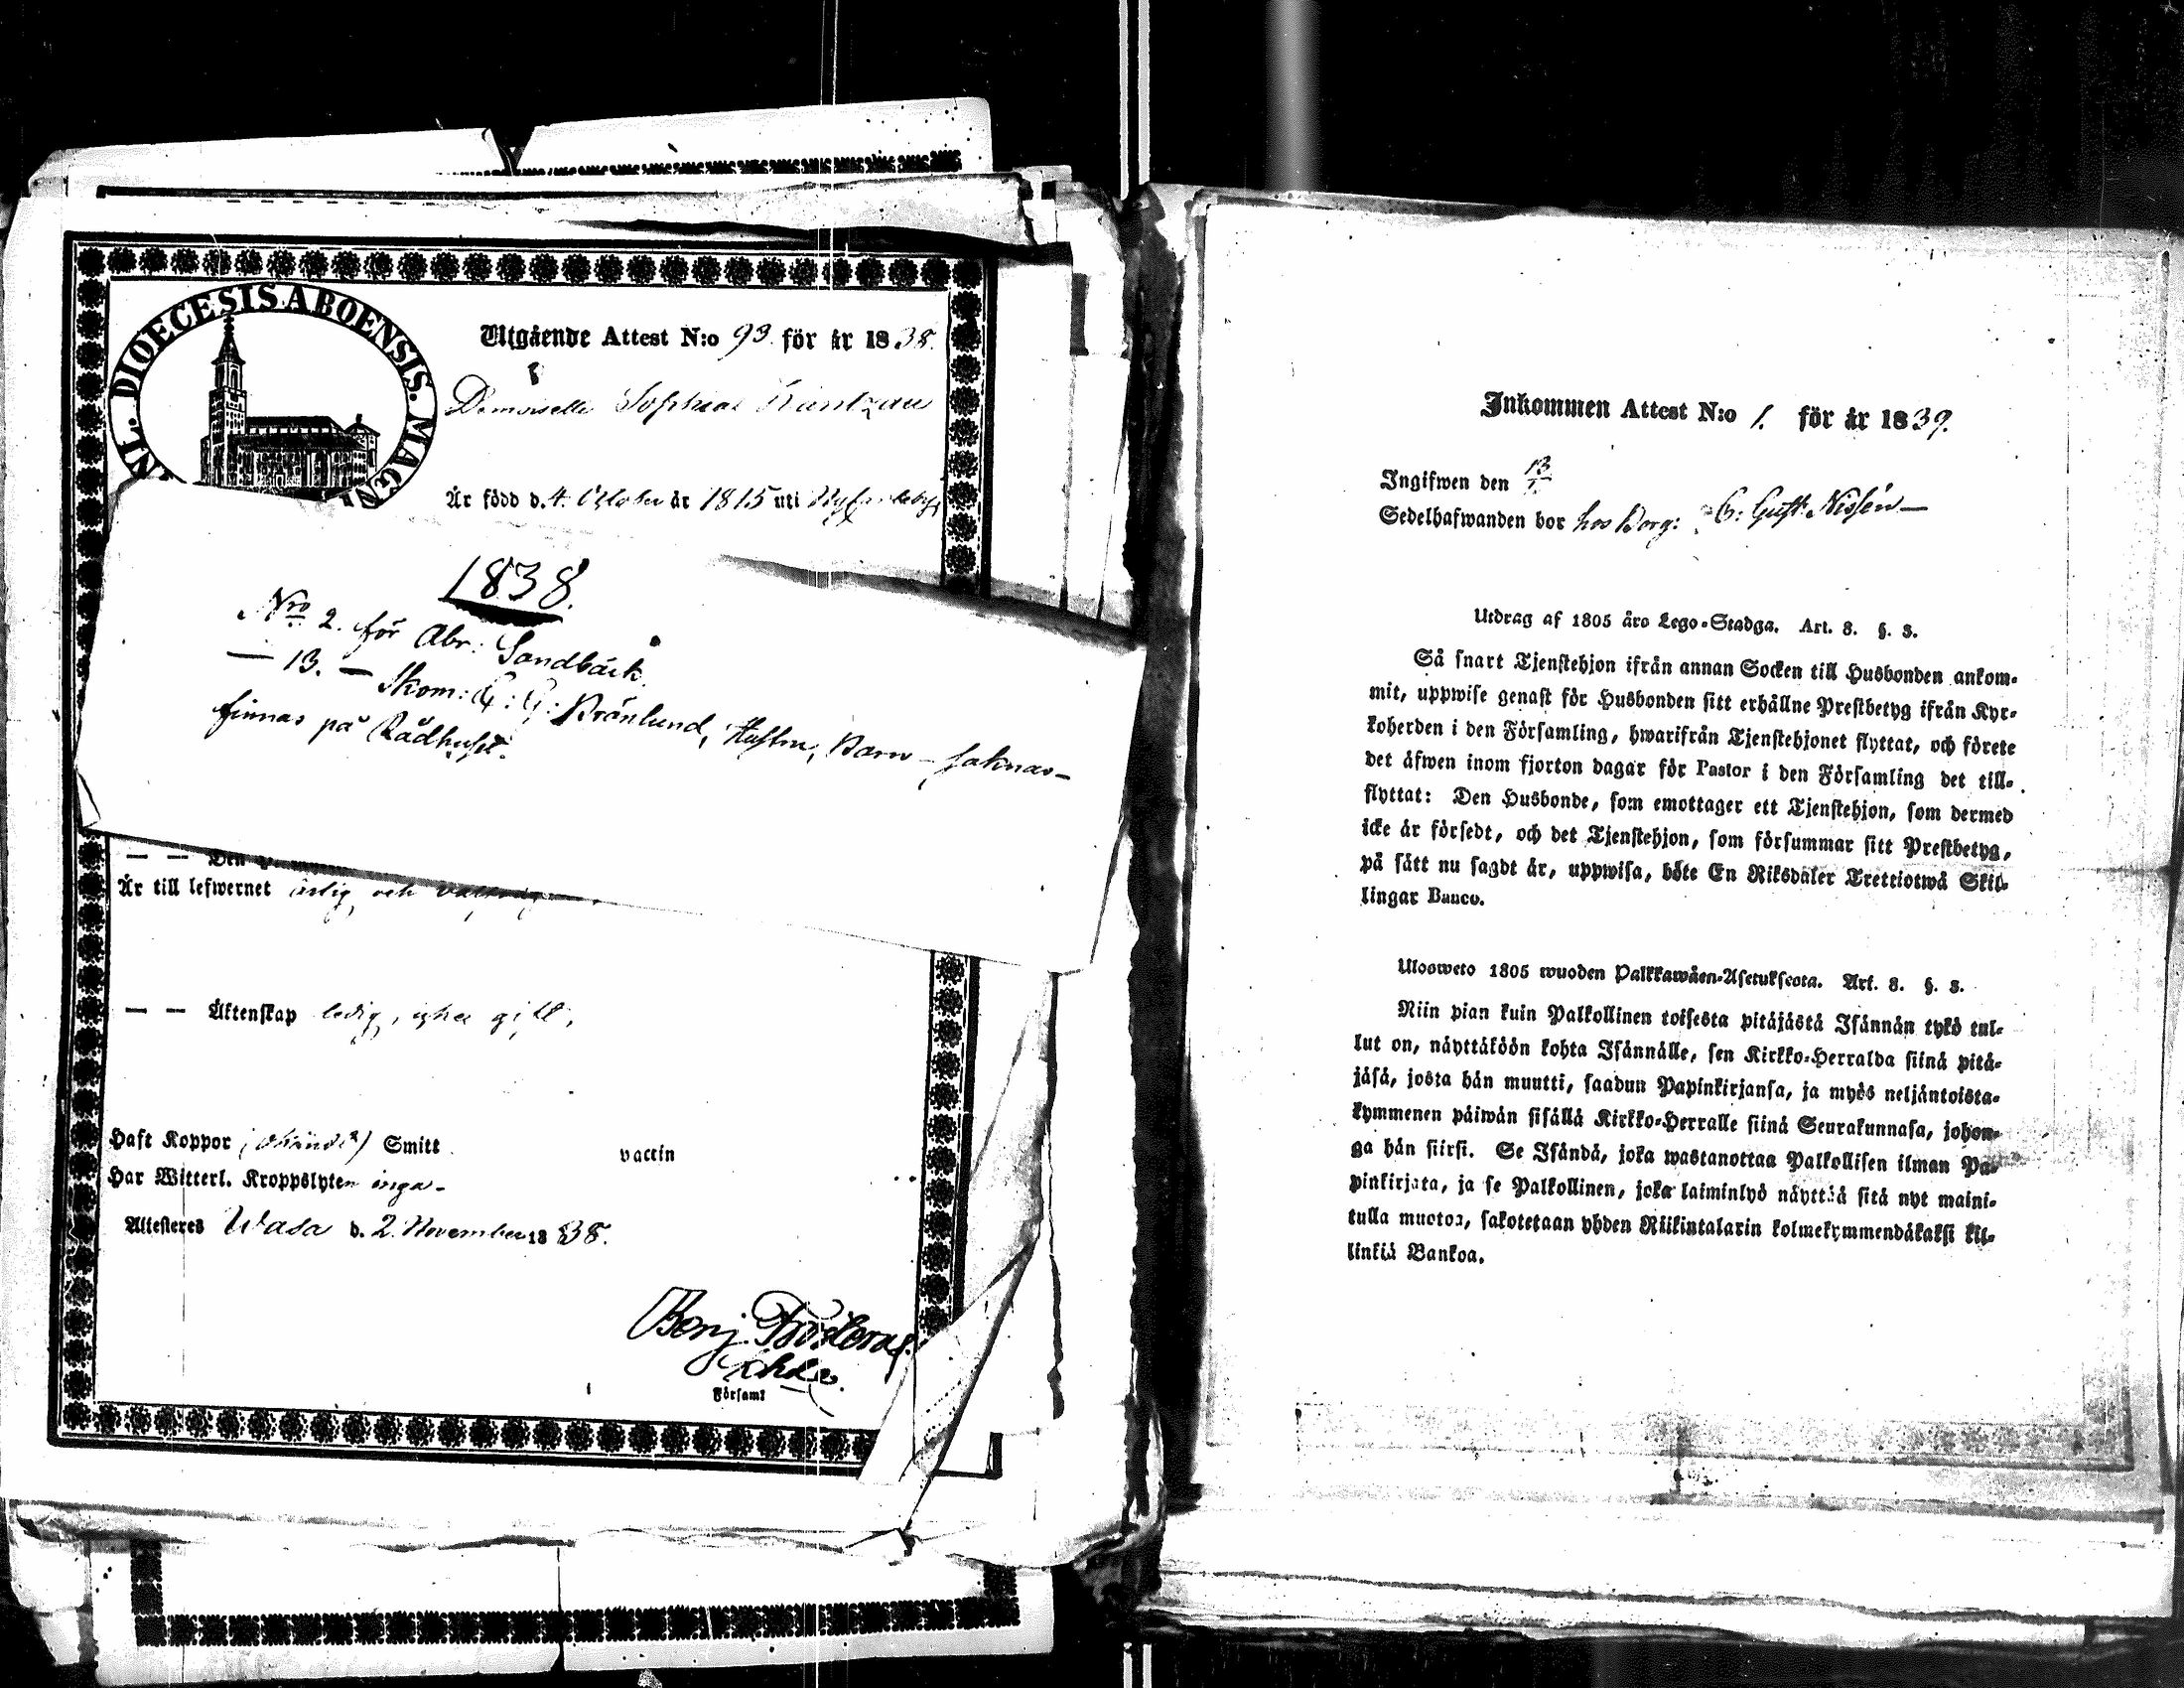 DIOECESIS ABOENSIS. MAGNI
Utgående Attest N:o 93. för år 1838.
Demoiselle Sophia Rantzau
Är född d. 4. October år 1815 uti
1838.
Nro 2. för Abr: Sandbäck.
— 13. — Skom: C: G: Brönlund, Hustru, Barn — saknas —
finnas på Rådhuset.
— — Den
Är till lefwernet ärlig och
— — Äktenskap ledig,
Haft Koppor Smitt vaccin
Har Witterl. Kroppslyten inga -
Attesteres Wasa d. 2. November 1838.
Benj.
Församl
Inkommen Attest N:o 1. för år 1839.
Ingifwen den 13/1.
Sedelhafwanden bor hos Borg: C: Gust: Nissén —
Utdrag af 1805 års Lego-Stadga. Art. 8. §. 3.
Så snart Tjenstehjon ifrån annan Socken till Husbonden ankom-
mit, uppwise genast för Husbonden sitt erhållne Prestbetyg ifrån Kyr-
koherden i den Församling, hwarifrån Tjenstehjonet flyttat, och förete
det äfwen inom fjorton dagar för Pastor i den Församling det till-
flyttat: Den Husbonde, som emottager ett Tjenstehjon, som dermed
icke är försedt, och det Tjenstehjon, som försummar sitt Prestbetyg,
på sätt nu sagdt är, uppwisa, böte En Riksdaler Trettiotwå Skil-
lingar Banco.
Ulosweto 1805 wuoden Palkkawäen-Asetuksesta. Art. 8. §. 3.
Niin pian kuin Palkollinen toisesta pitäjästä Isännän tykö tul-
lut on, näyttäköön kohta Isännälle, sen Kirkko-Herralda siinä pitä-
jäsä, josta hän muutti, saadun Papinkirjansa, ja myös neljäntoista-
kymmenen päiwän sisällä Kirkko-Herralle siinä Seurakunnasa, johon-
ga hän siirsi. Se Isändä, joka wastanottaa Palkollisen ilman Pa-
pinkirjata, ja se Palkollinen, joka laiminlyö näyttää sitä nyt maini-
tulla muotoa, sakotetaan yhden Riikintalarin kolmekymmendäkaksi kil-
linkiä Bankoa.